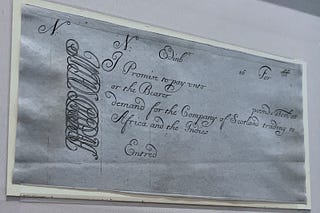 N. N.
Edinb^r 16 For ₶
I Promise to pay unto
or the Bearer
demand for the Company of Scotland trading to
Africa and the Indies
Entred